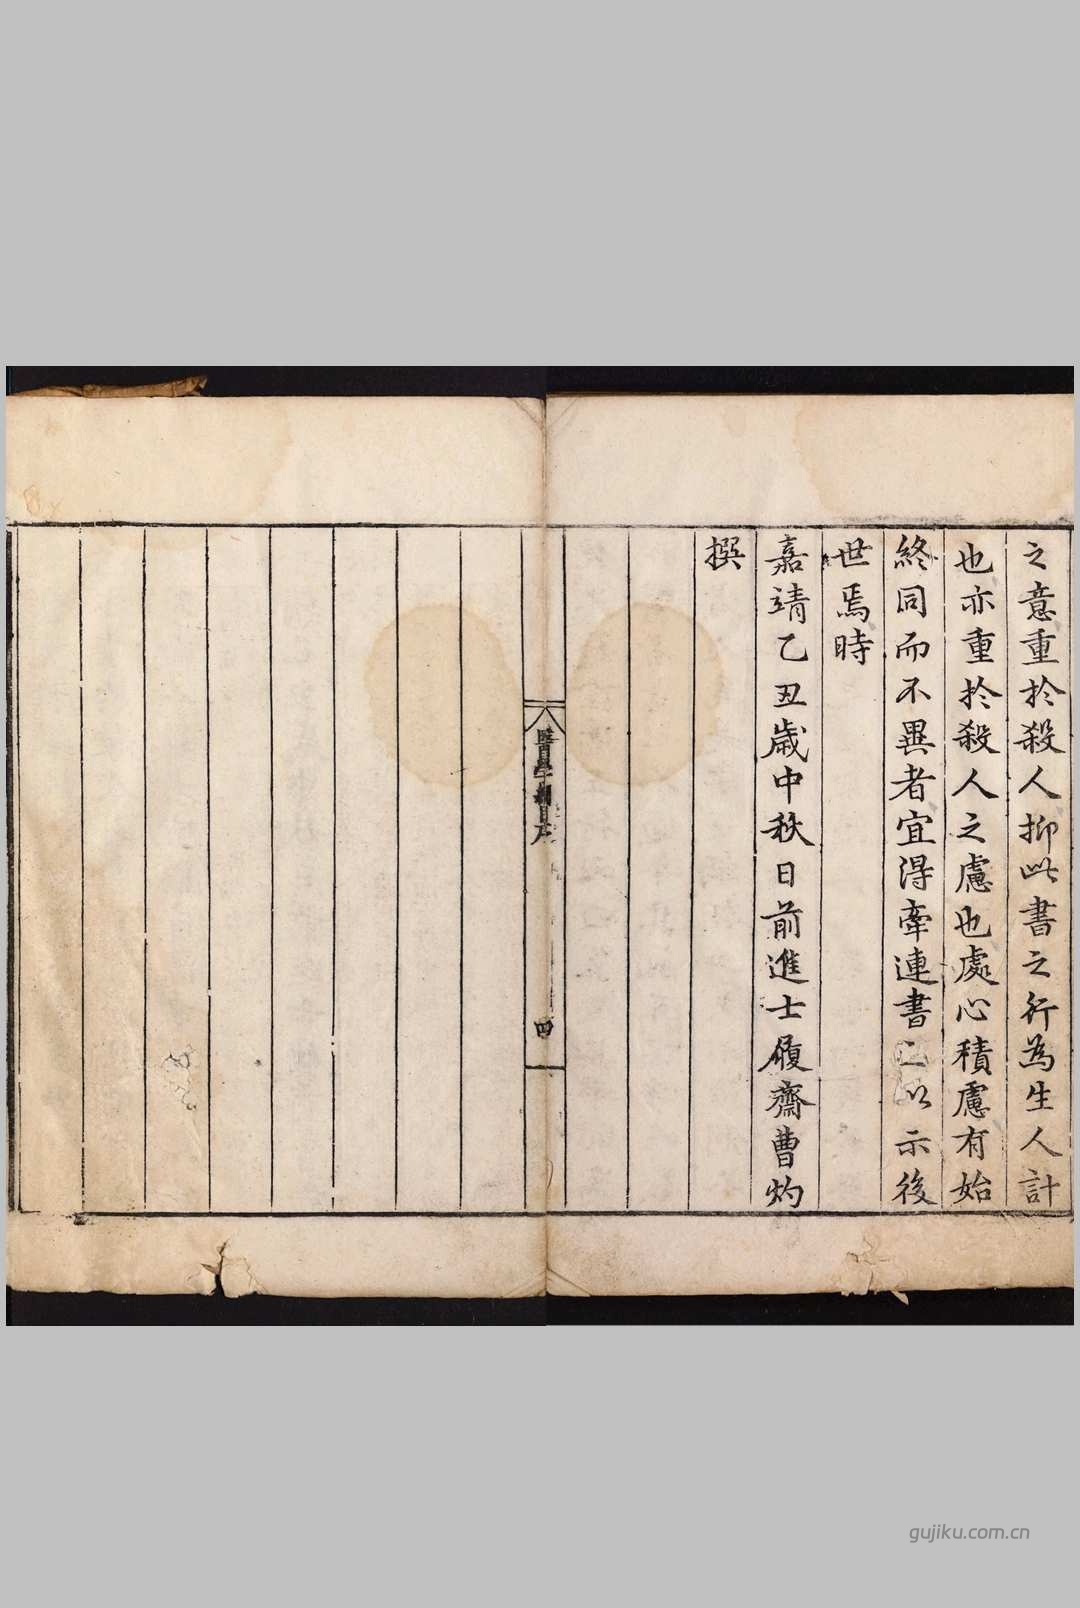 之意重於殺人抑此書之行為生人計
也亦重於殺人之慮也處心積慮有始
終同而不異者宜得牽連書之以示後
世焉時
嘉靖乙丑歲中秋日前進士履齋曹灼
撰
醫學綱目序
四
gujiku.com.cn